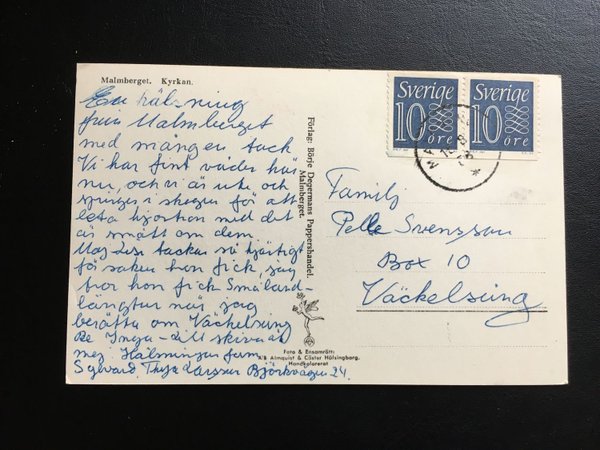 Malmberget. Kyrkan.
En hälsning
från Malmberget
med mången tack
Vi har fint väder här
nu, och vi är ute och
springer i skogen för att
leta hjortron med det
är smått om dem
Maj-Lise tackar så hjärtigt
för saken hon fick, jag
tror hon fick Småland-
längtan när jag
berätta om Väckelsång
Be Inga-Lill skriva åt
mej. Hälsningar från
Sylvard, Thyra Larsson Björkvägen 24.
Förlag: Börje Degermans Pappershandel.
Malmberget.
Foto & Ensamrätt:
A/B Almquist & Cöster Hälsingborg.
Handkolorerat
Sverige
10 öre
Sverige
10 öre
Familj
Pelle Svensson
Box 10
Väckelsång